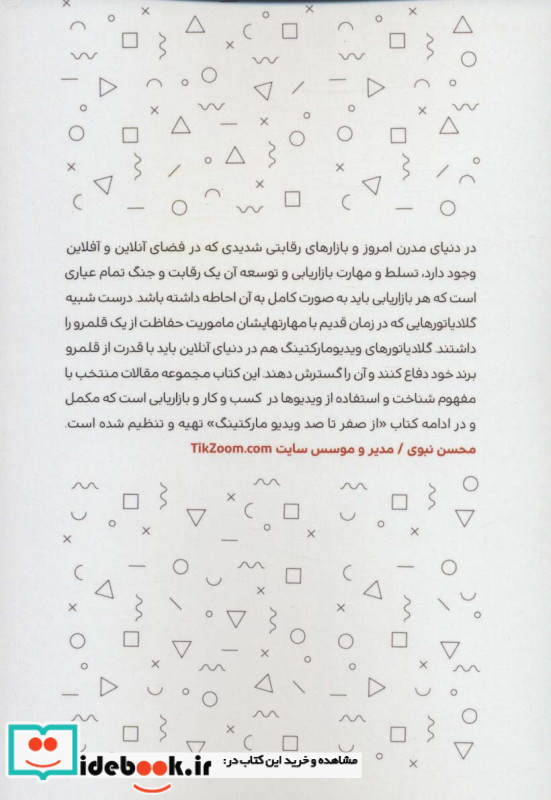 در دنیای مدرن امروز و بازارهای رقابتی شدیدی که در فضای آنلاین و آفلاین
وجود دارد، تسلط و مهارت بازاریابی و توسعه آن یک رقابت و جنگ تمام عیاری
است که هر بازاریابی باید به صورت کامل به آن احاطه داشته باشد. درست شبیه
گلادیاتورهایی که در زمان قدیم با مهارتهایشان ماموریت حفاظت از یک قلمرو را
داشتند. گلادیاتورهای ویدیومارکتینگ هم در دنیای آنلاین باید با قدرت از قلمرو
برند خود دفاع کنند و آن را گسترش دهند. این کتاب مجموعه مقالات منتخب با
مفهوم شناخت و استفاده از ویدیوها در کسب و کار و بازاریابی است که مکمل
و در ادامه کتاب «از صفر تا صد ویدیو مارکتینگ» تهیه و تنظیم شده است.
محسن نبوی / مدیر و موسس سایت TikZoom.com
مشاهده و خرید این کتاب در:
idebook.ir